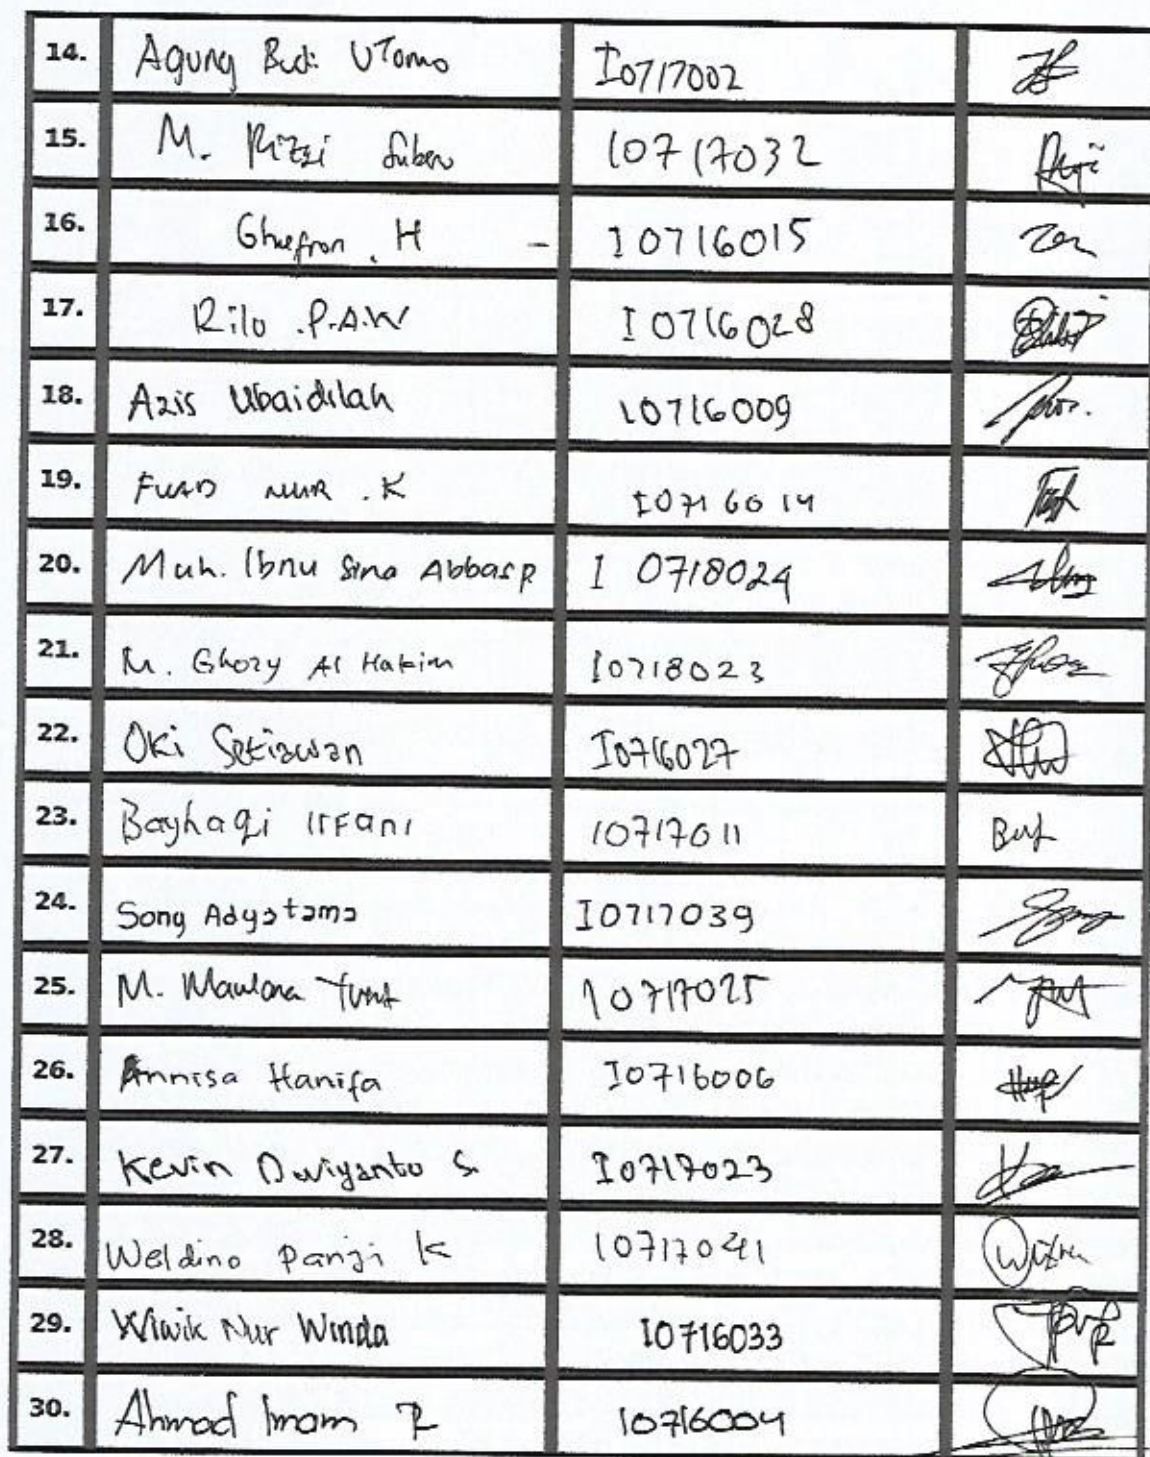 14. Agung Budi Utomo I0717002
15. M. Rizqi 10717032
16. Ghufron . H - I0716015
17. Rilo .P.A.W I0716028
18. Azis Ubaidilah 10716009
19. FUAD NUR .K I0716014
20. Muh. Ibnu Sina Abbas P I 0718024
21. M. Ghozy Al Hakim I0718023
22. Oki Setiawan I0716027
23. Bayhaqi Irfani 10717011
24. Sony Adyatama I0717039
25. M. Maulana Yusuf 10717025
26. Annisa Hanifa I0716006
27. Kevin Dwiyanto S. I0717023
28. Weldino Panji K 10717041
29. Wiwik Nur Winda I0716033
30. Ahmad Imam P 10716004